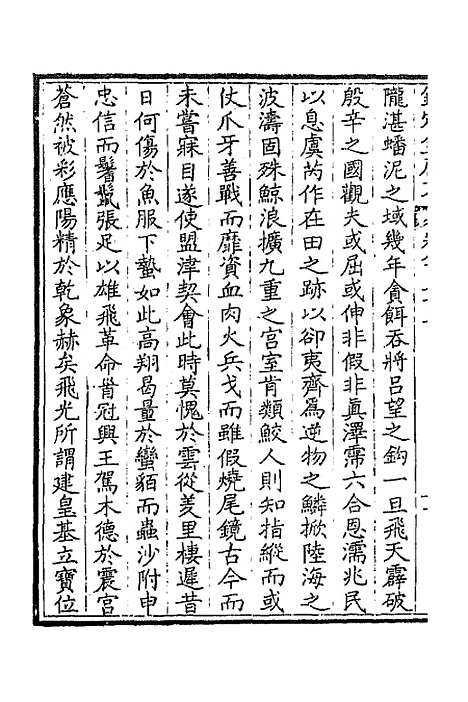 隴湛蟠泥之域幾年貪餌吞將呂望之鈎一旦飛天霹破
殷辛之國觀夫或屈或伸非假非真澤霈六合恩濡兆民
以息虞芮作在田之跡以卻夷齊為逆物之鱗掀陸海之
波濤固殊鯨浪擴九重之宫室肯類鮫人則知指縱而或
仗爪牙善戰而靡資血肉火兵戈而雖假燒尾鏡古今而
未嘗寐目遂使盟津契會此時莫愧於雲從羑里棲遲昔
日何傷於魚服下蟄如此高翔曷量於蠻貊而蟲沙附申
忠信而鬐鬛張足以雄飛革命首冠興王駕木德於震宫
蒼然被彩應陽精於乾象赫矣飛光所謂建皇基立寶位